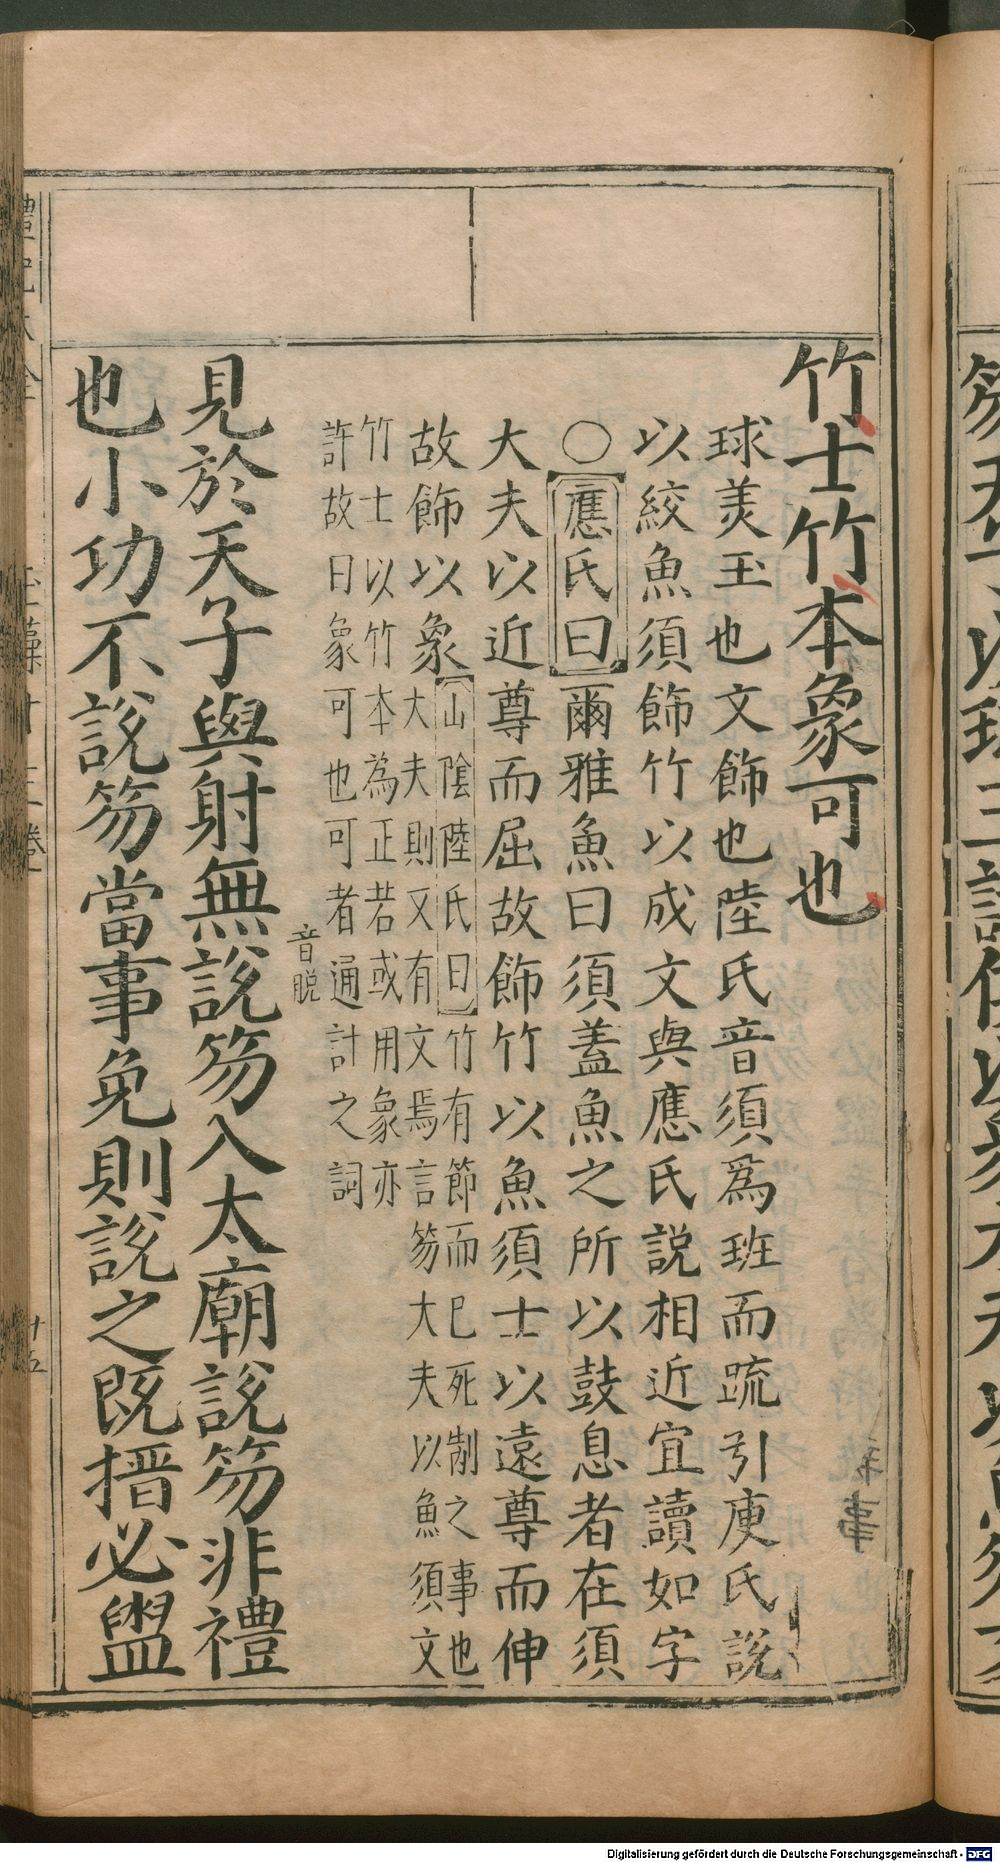 竹士竹本象可也
球美玉也文飾也陸氏音須爲班而疏引庾氏説
以絞魚須飾竹以成文與應氏説相近宜讀如字
〇應氏曰爾雅魚曰須蓋魚之所以鼓息者在須
大夫以近尊而屈故飾竹以魚須士以遠尊而伸
故飾以象
山陰陸氏曰竹有節而已死制之事也
大夫則又有文焉言笏大夫以魚須文
竹士以竹本為正若或用象亦
許故曰象可也可者通計之詞
音脱
見於天子與射無説笏入太廟説笏非禮
也小功不説笏當事免則説之既搢必盥
十五
Digitalisierung gefördert durch die Deutsche Forschungsgemeinschaft - DFG